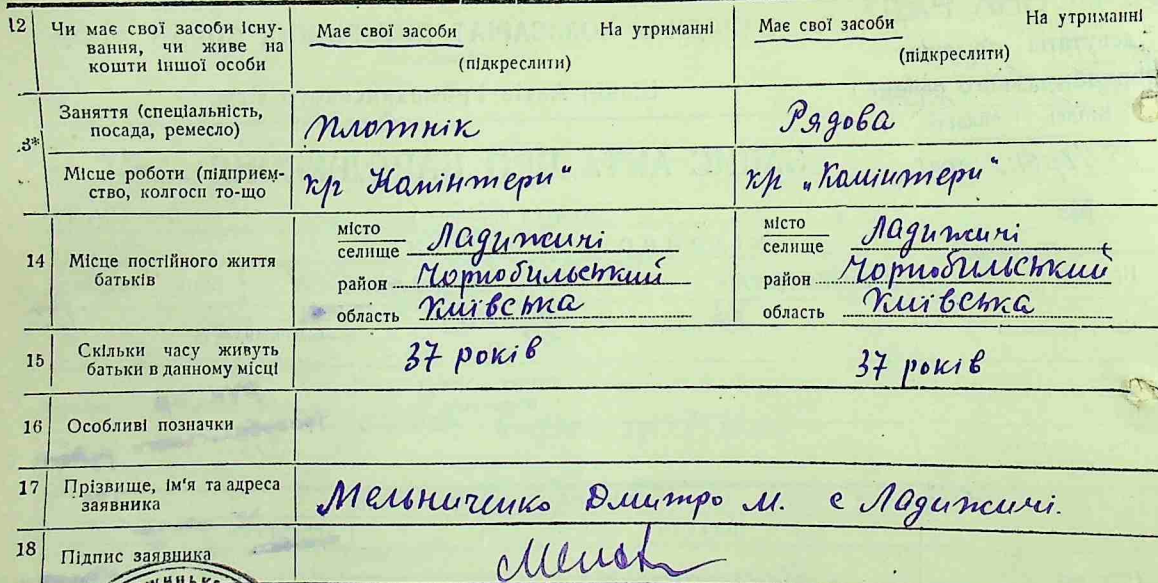 12 Чи має свої засоби існування, чи живе на кошти іншої особи
Має свої засоби На утриманні
(підкреслити)
Має свої засоби На утриманні
(підкреслити)
3* Заняття (спеціальність, посада, ремесло)
Плотнік
Рядова
Місце роботи (підприємство, колгосп то-що
к/г „Комінтерн"
к/г „Комінтерн"
14 Місце постійного життя батьків
місто
селище Ладижичі
район Чорнобильський
область Київська
місто
селище Ладижичі
район Чорнобильський
область Київська
15 Скільки часу живуть батьки в данному місці
37 років
37 років
16 Особливі позначки
17 Прізвище, ім'я та адреса заявника
Мельниченко Дмитро М. с Ладижичі.
18 Підпис заявника